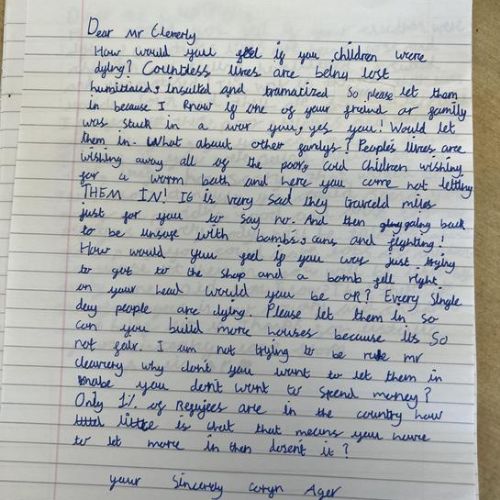 Dear Mr Cleverly
How would you feel if you children were
dying? Countless lives are being lost
humiliaud, insulted and tramatized so please let them
in because I know if one of your freind or family
was stuck in a war you, yes you! Would let
them in. What about other familys? People's lives are
wishing away all of the poor, cold children wishing
for a warm bath and here you come not letting
THEM IN! IG is very sad they traveld miles
just for you to say no. And then going back
to be unsafe with bombs, guns and fighting!
How would you feel if you was just trying
to get to the shop and a bomb fell right
on your head would you be OK? Every single
day people are dying. Please let them in so
can you build more houses because its so
not fair. I am not trying to be rude mr
cleaverly why don't you want to let them in
mabe you don't want to spend money?
Only 1% of Refugees are in the country how
little is that that means you have
to let more in then dosent it?
your Sincerly Ager